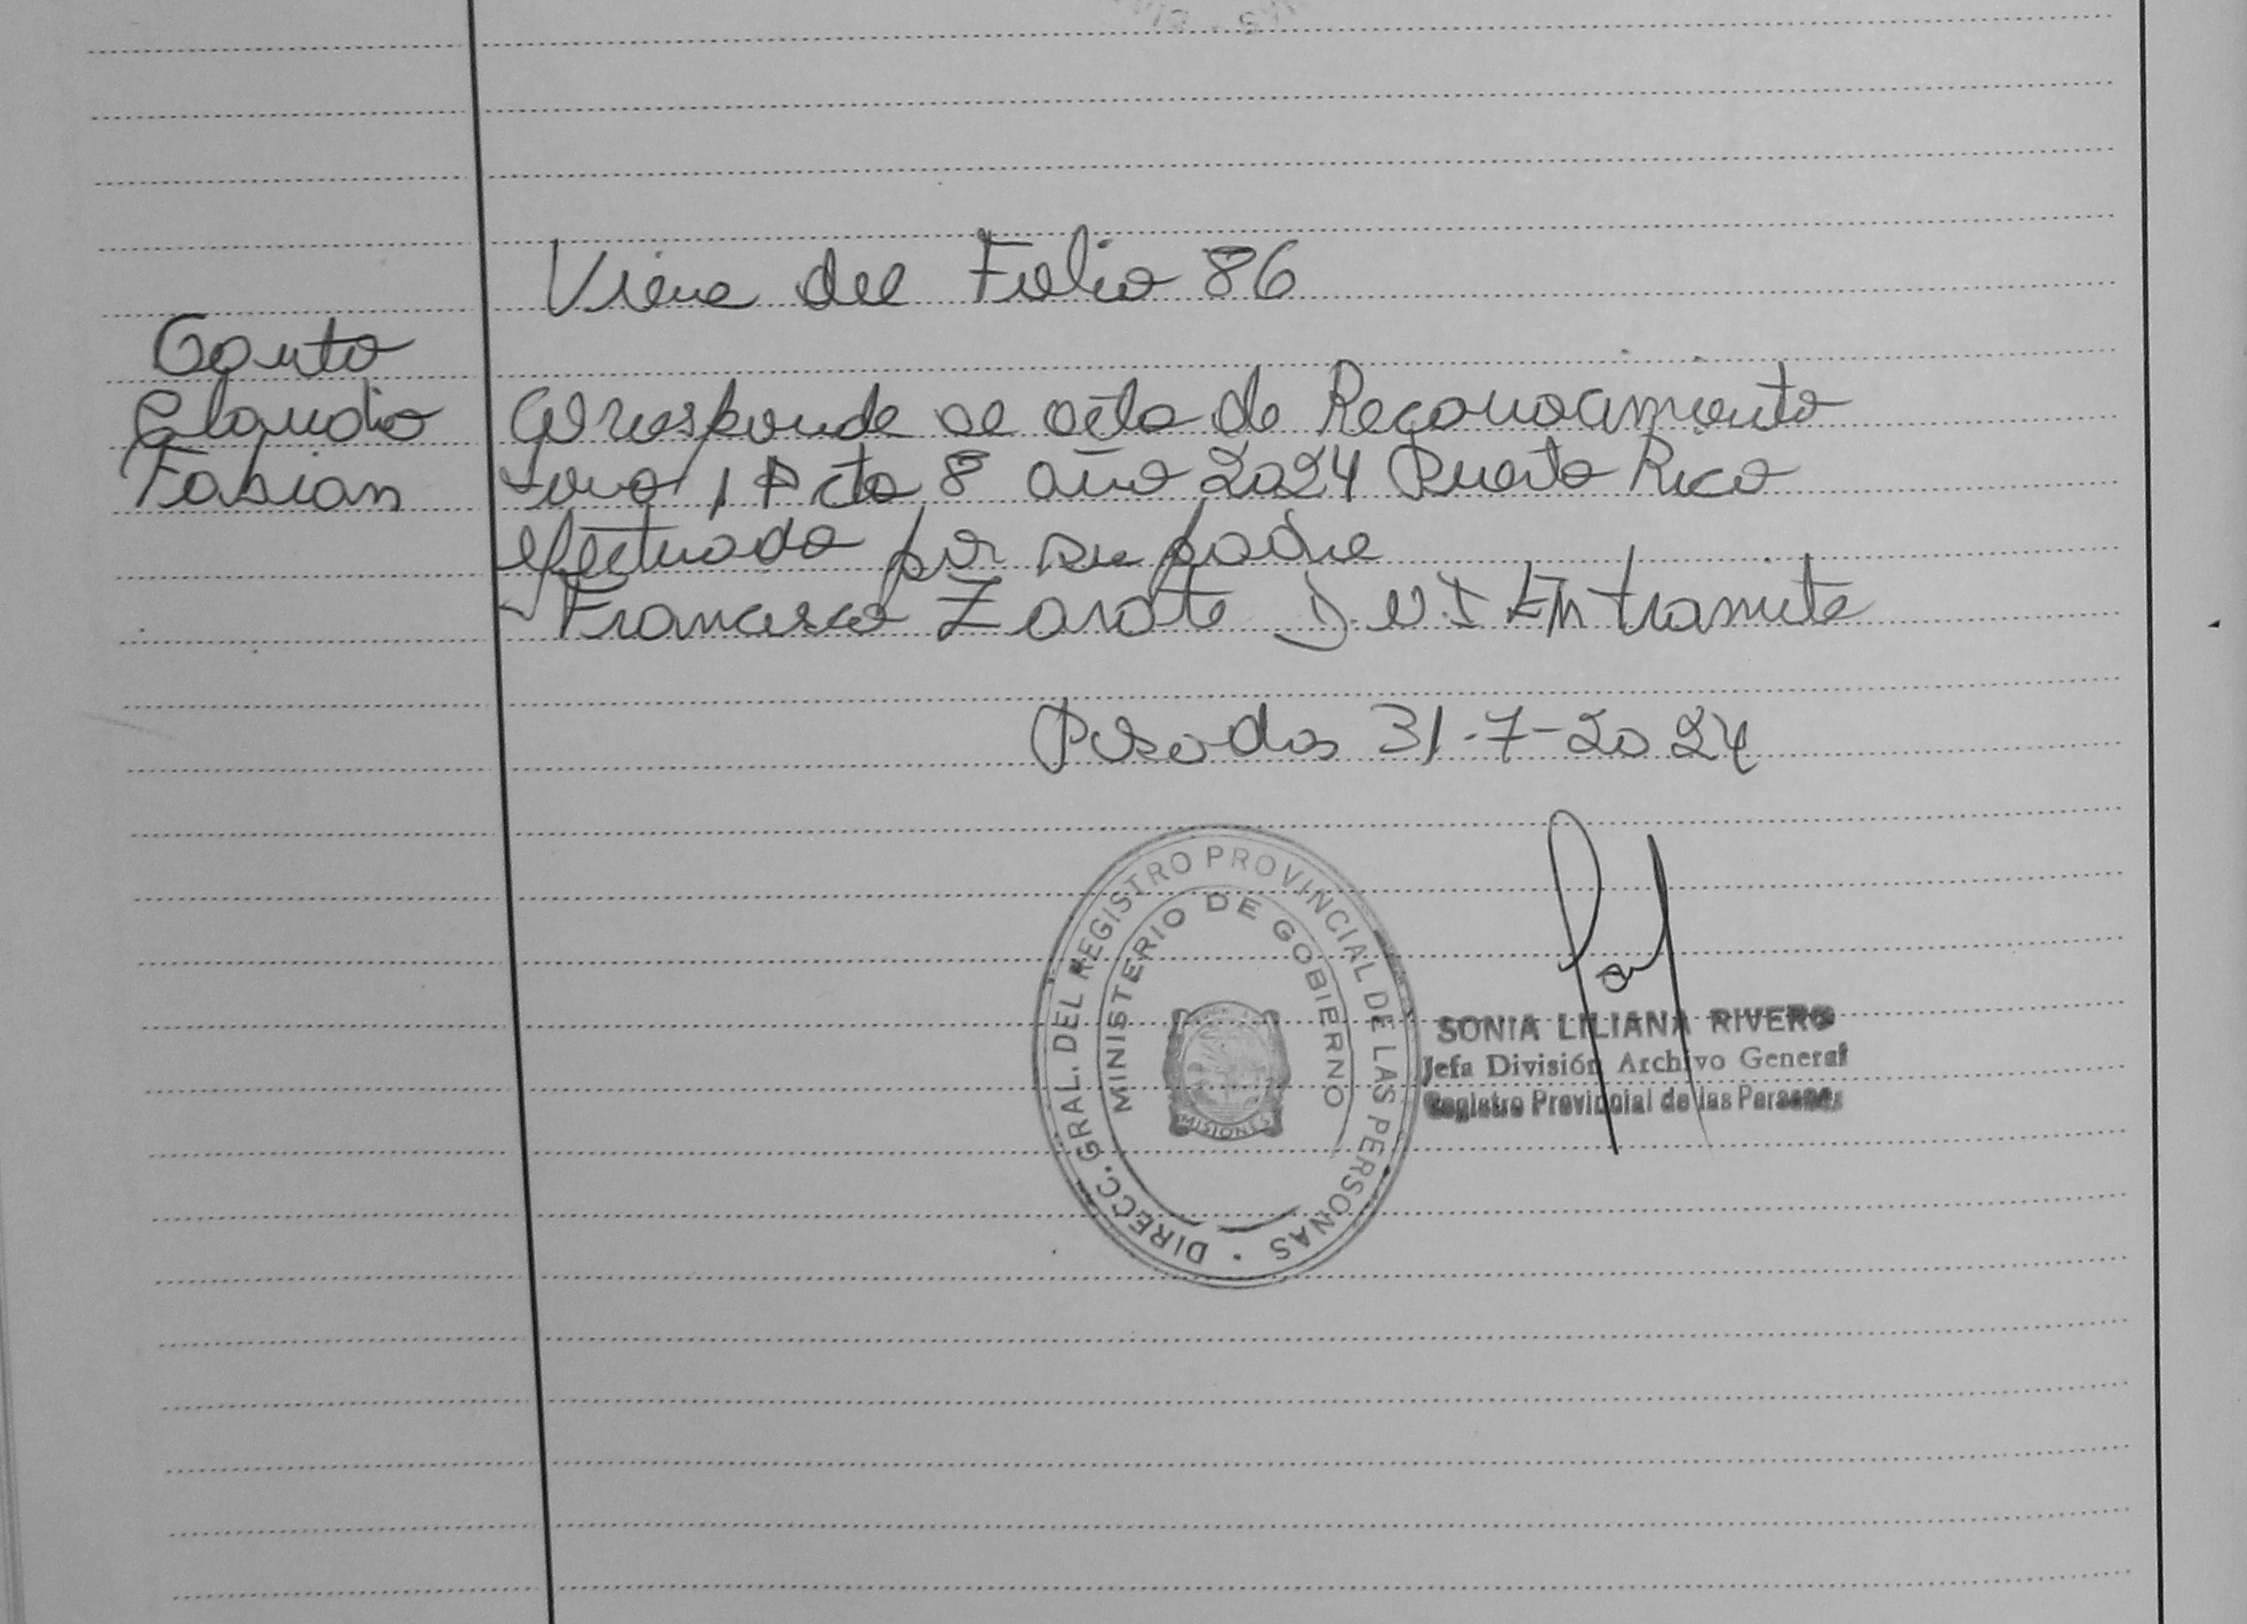 Viene del Folio 86
Couto
Claudio
Fabian
Corresponde se acta de Reconocimiento
tomo 1 Acta 8 año 2024 Puerto Rico
efectuada por su padre
Francisco Zarate D.N.I En tramite
Posadas 31-7-2024
DIRECC. GRAL. DEL REGISTRO PROVINCIAL DE LAS PERSONAS
MINISTERIO DE GOBIERNO
MISIONES
SONIA LILIANA RIVERO
Jefa División Archivo General
Registro Provincial de las Personas